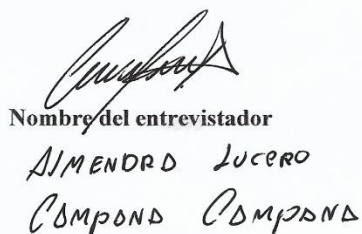 Nombre del entrevistador
AlMENDRA Lucero
CAMPANA CAMPANA